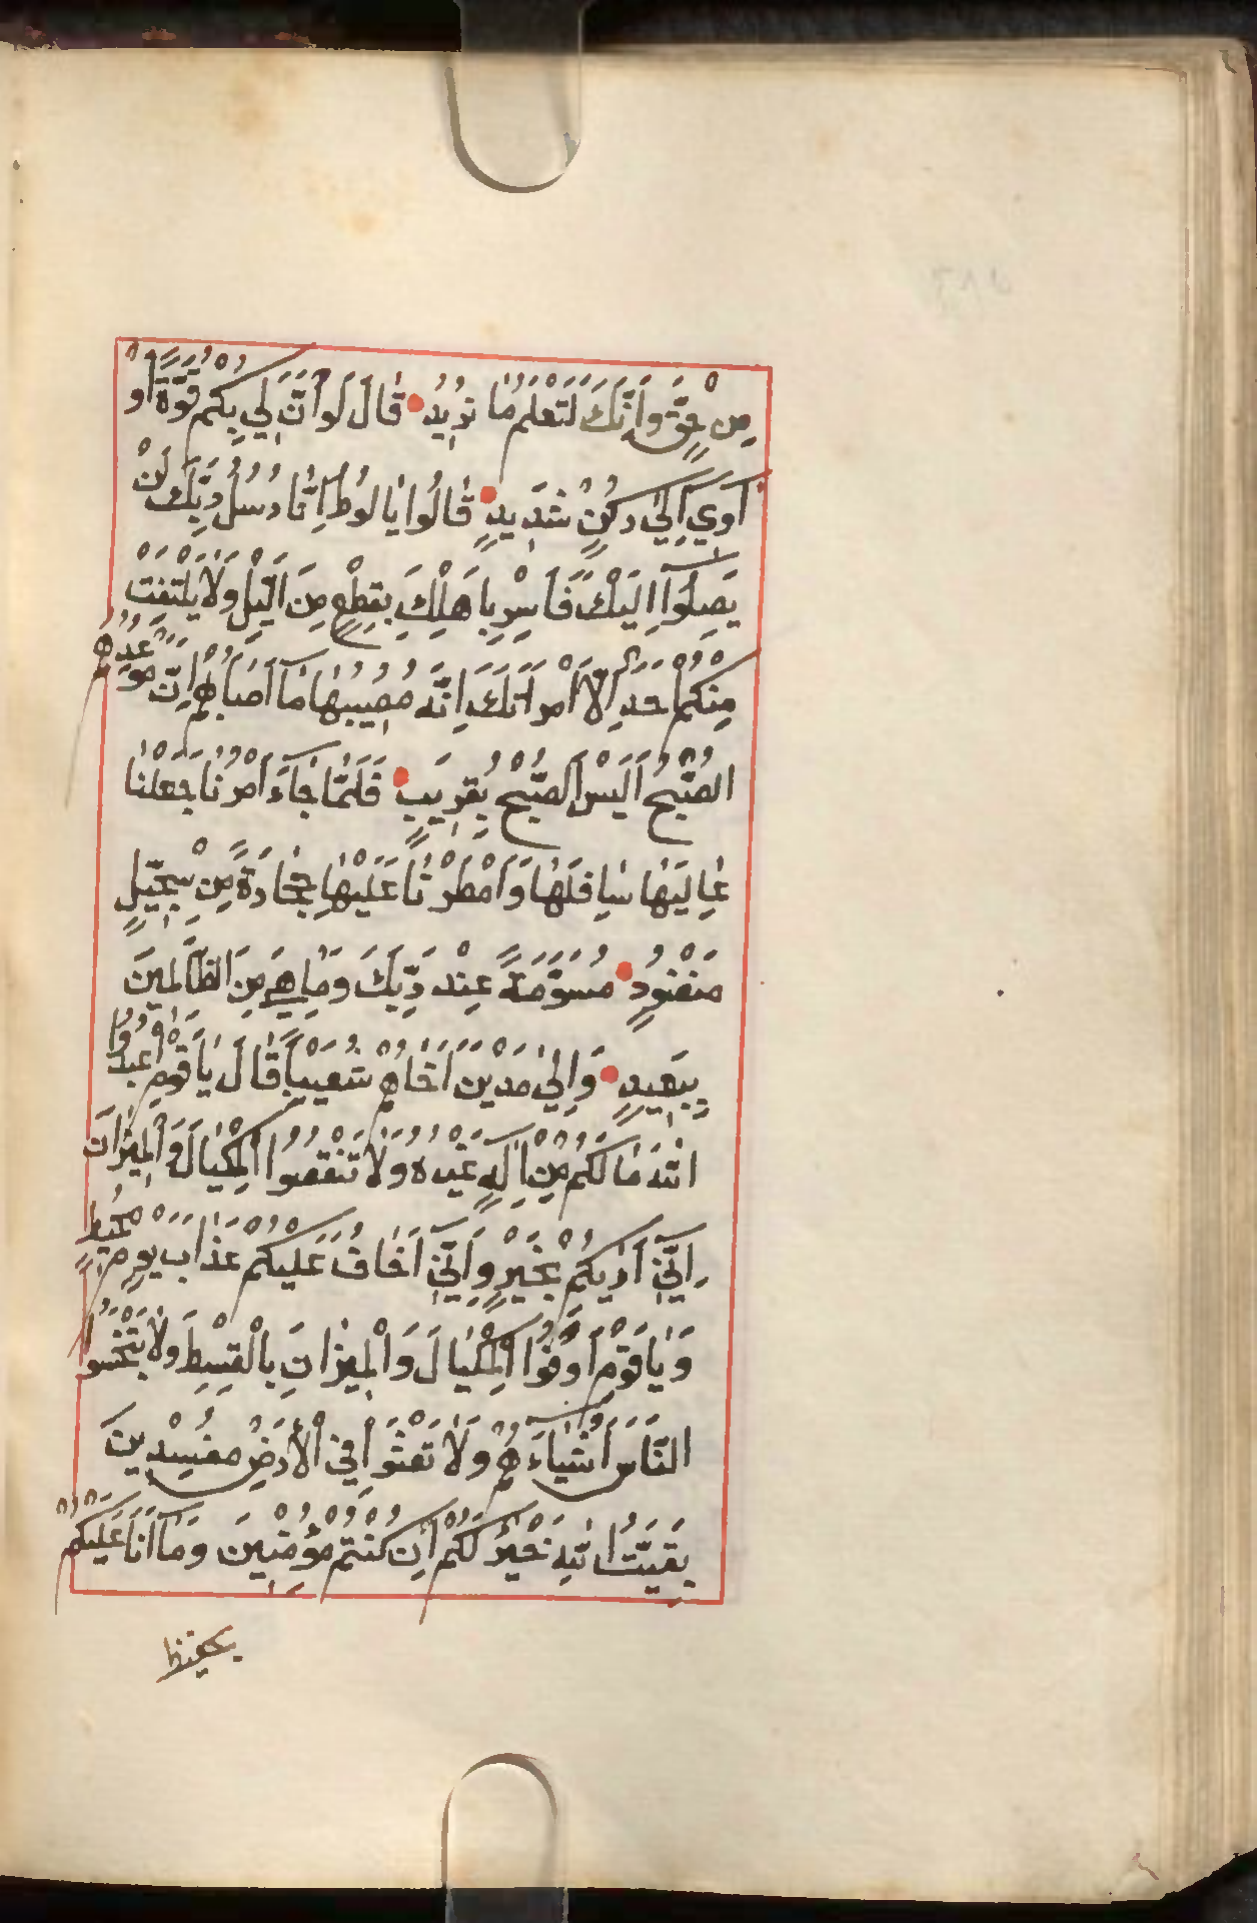 مِنْ حَقٍّ وَاِنَّكَ لَتَعْلَمُ مَا نُرٖيدُ قَالَ لَوْ اَنَّ لٖي بِكُمْ قُوَّةً اَوْ
اٰوٖي اِلٰي رُكْنٍ شَدٖيدٍ قَالُوا يَا لُوطُ اِنَّا رُسُلُ رَبِّكَ لَنْ
يَصِلُوٓا اِلَيْكَ فَاَسْرِ بِاَهْلِكَ بِقِطْعٍ مِنَ الَّيْلِ وَلَا يَلْتَفِتْ
مِنْكُمْ اَحَدٌ اِلَّا امْرَاَتَكَ اِنَّهُ مُصٖيبُهَا مَٓا اَصَابَهُمْ اِنَّ مَوْعِدَهُمُ
الصُّبْحُ اَلَيْسَ الصُّبْحُ بِقَرٖيبٍ فَلَمَّا جَٓاءَ اَمْرُنَا جَعَلْنَا
عَالِيَهَا سَافِلَهَا وَاَمْطَرْنَا عَلَيْهَا حِجَارَةً مِنْ سِجّٖيلٍ
مَنْضُودٍ مُسَوَّمَةً عِنْدَ رَبِّكَ وَمَا هِيَ مِنَ الظَّالِمٖينَ
بِبَعٖيدٍ وَاِلٰي مَدْيَنَ اَخَاهُمْ شُعَيْبًا قَالَ يَا قَوْمِ اعْبُدُوا
اللّٰهَ مَا لَكُمْ مِنْ اِلٰهٍ غَيْرُهُ وَلَا تَنْقُصُوا الْمِكْيَالَ وَالْمٖيزَانَ
اِنّٖٓي اَرٰيكُمْ بِخَيْرٍ وَاِنّٖٓي اَخَافُ عَلَيْكُمْ عَذَابَ يَوْمٍ مُحٖيطٍ
وَيَا قَوْمِ اَوْفُوا الْمِكْيَالَ وَالْمٖيزَانَ بِالْقِسْطِ وَلَا تَبْخَسُوا
النَّاسَ اَشْيَٓاءَهُمْ وَلَا تَعْثَوْا فِي الْاَرْضِ مُفْسِدٖينَ
بَقِيَّتُ اللّٰهِ خَيْرٌ لَكُمْ اِنْ كُنْتُمْ مُؤْمِنٖينَ وَمَٓا اَنَا عَلَيْكُمْ
بحفيظ